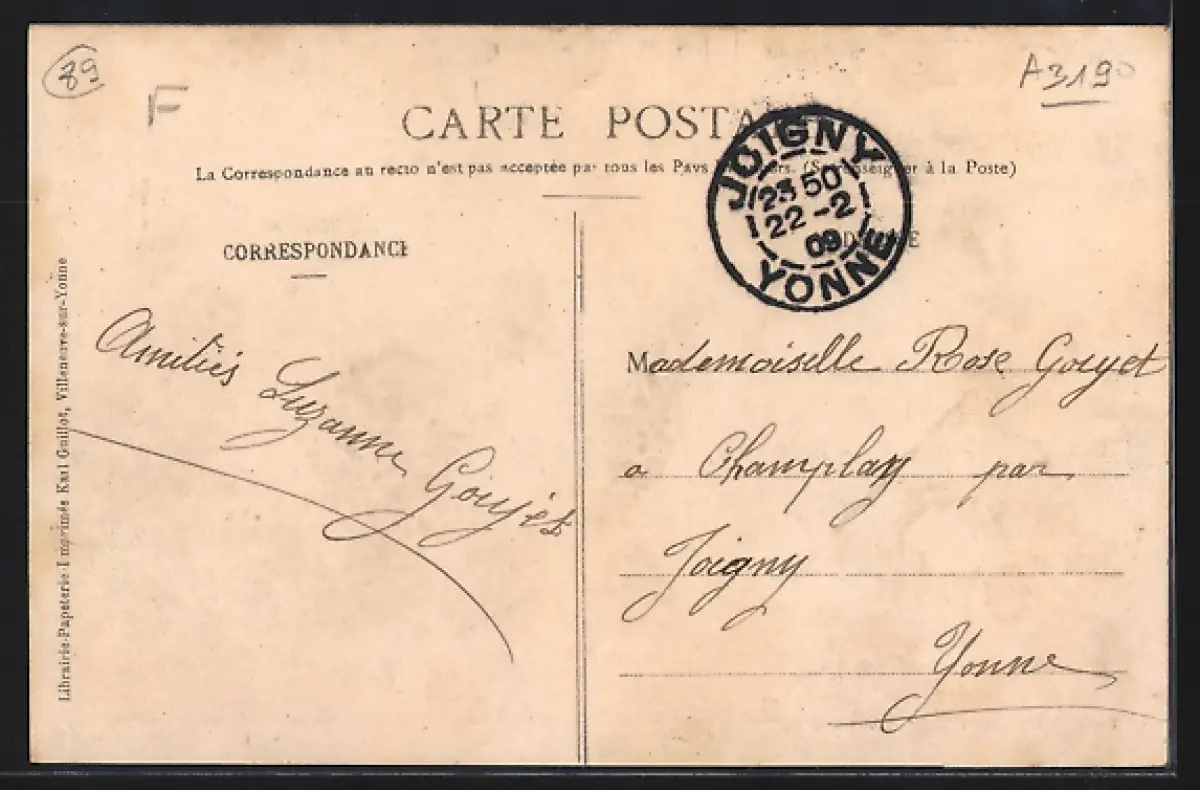 89
F
A3190
CARTE POSTA
La Correspondance au recto n'est pas acceptée par tous les Pays (Se renseigner à la Poste)
JOIGNY
23 50
22-2
09
YONNE
CORRESPONDANCE
Amitiés
Suzanne
Goujet
Mademoiselle Rose Goujet
a Champlay par
Joigny
Yonne
Librairie-Papeterie-Imprimés Karl Guillot, Villeneuve-sur-Yonne